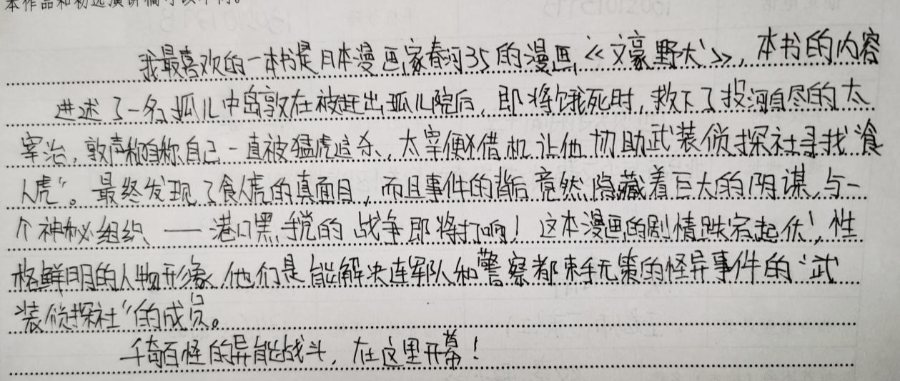 我最喜欢的一本书是日本漫画家春河35的漫画《文豪野犬》,本书的内容
讲述了一名孤儿中岛敦在被赶出孤儿院后,即将饿死时,救下了投河自尽的太
宰治,敦声称自称自己一直被猛虎追杀,太宰便借机让他协助武装侦探社寻找“食
人虎”。最终发现了食人虎的真面目,而且事件的背后竟然隐藏着巨大的阴谋,与一
个神秘组织——港口黑手党的战争即将打响!这本漫画的剧情跌宕起伏!性
格鲜明的人物形象,他们是能解决连军队和警察都束手无策的怪异事件的“武
装侦探社”的成员。
千奇百怪的异能战斗,在这里开幕!